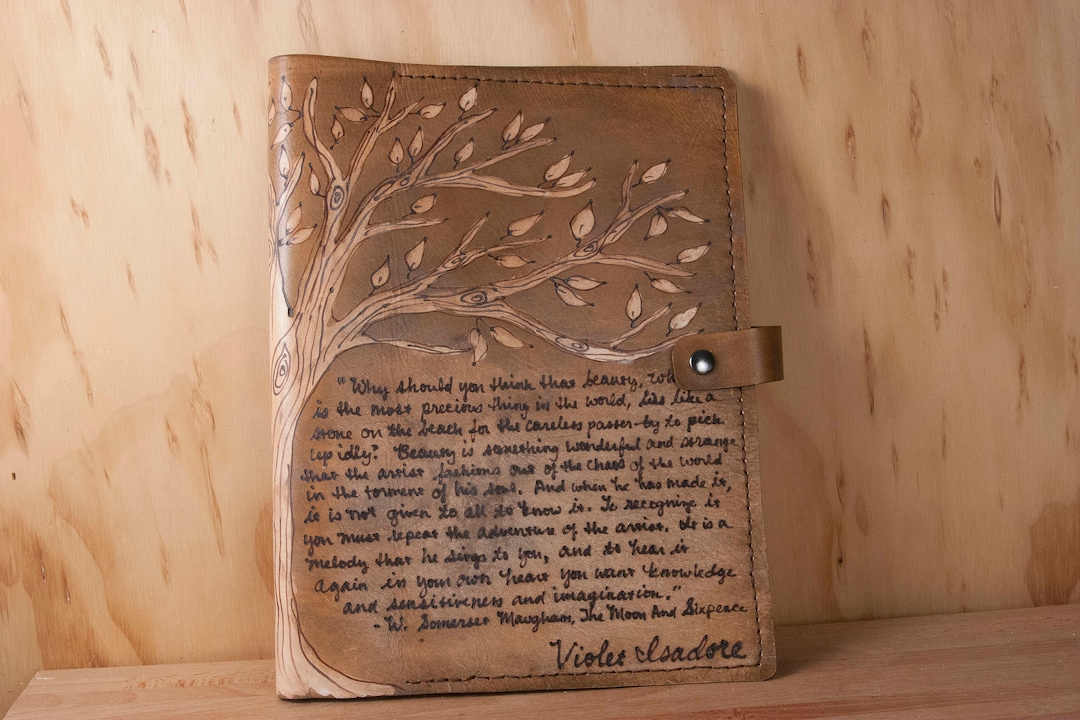 "Why should you think that beauty, wh
is the most precious thing in the world, lies like a
stone on the beach for the careless passer-by to pick
up idly? Beauty is something wonderful and strange
that the artist fashions out of the chaos of the world
in the torment of his soul. And when he has made it,
it is not given to all to know it. To recognize it
you must repeat the adventure of the artist. It is a
melody that he sings to you, and to hear it
again in your own heart you want knowledge
and sensitiveness and imagination."
- W. Somerset Maugham, The Moon And Sixpence
Violet Isadore